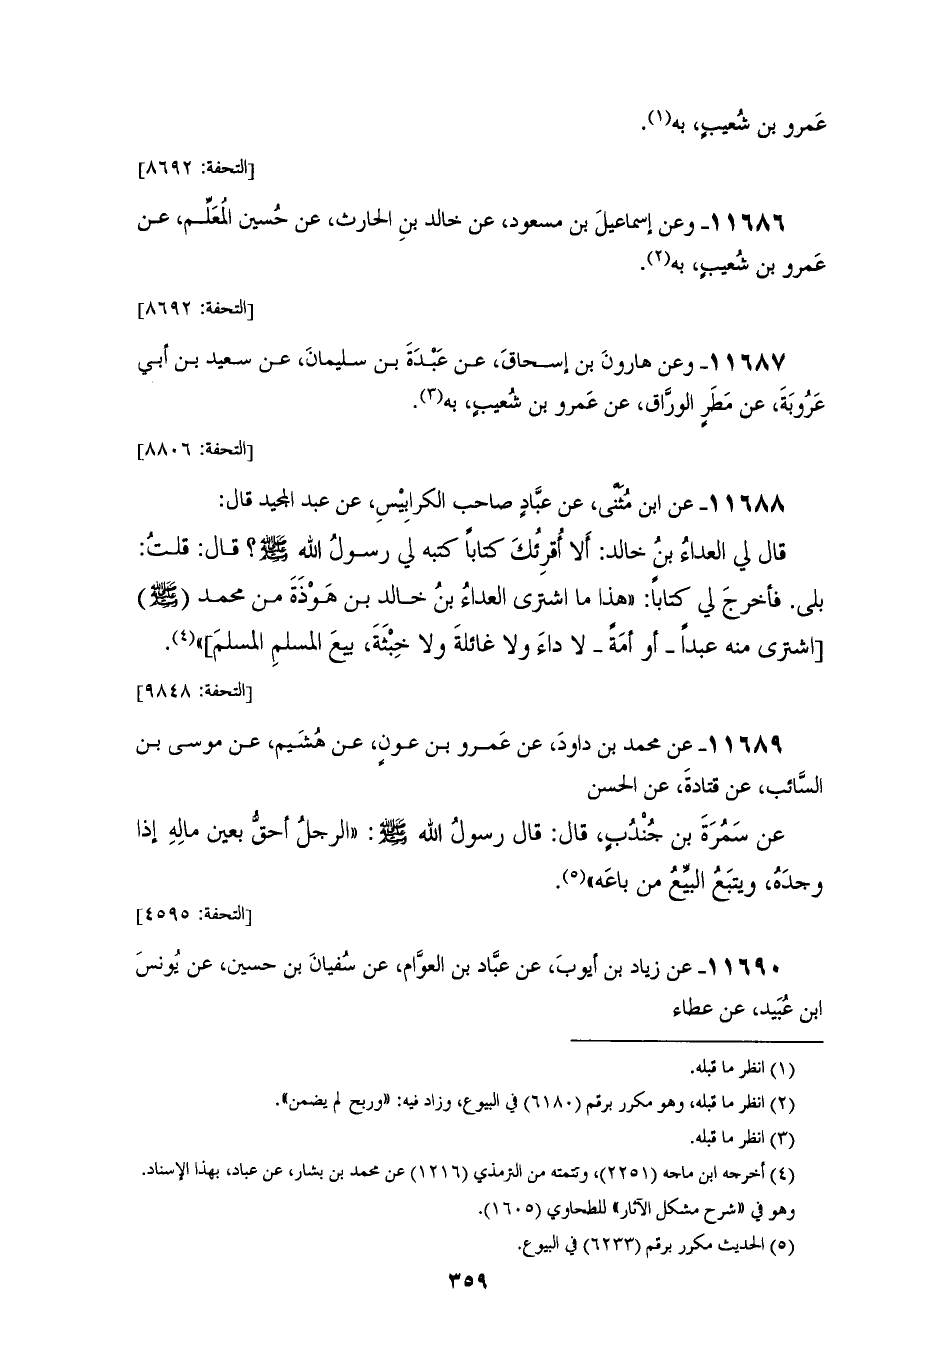 عَمرو بن شُعيبٍ، به(١).
[التحفة: ٨٦٩٢]
١١٦٨٦ـ وعن إسماعيلَ بن مسعود، عن خالد بنِ الحارث، عن حُسين المُعَلِّـم، عـن
عَمرو بن شُعيبٍ، به(٢).
[التحفة: ٨٦٩٢]
١١٦٨٧ـ وعن هارونَ بن إسـحاقَ، عـن عَبْـدَةَ بـن سليمانَ، عـن سـعيد بـن أبـي
عَرُوبَةَ، عن مَطَرٍ الورَّاق، عن عَمرو بن شُعيبٍ، به(٣).
[التحفة: ٨٨٠٦]
١١٦٨٨ـ عن ابن مُثَنَّى، عن عبَّادٍ صاحب الكرابِيْسِ، عن عبد المجيد قال:
قال لي العداءُ بنُ خالد: أَلا أُقرِئُكَ كتاباً كتبه لي رسـولُ الله ﷺ؟ قـال: قلـتُ:
بلى. فأخرجَ لي كتاباً: «هذا ما اشترى العداءُ بنُ خـالد بـن هَـوْذَةَ مـن محمـد (ﷺ)
[اشترى منه عبداً ـ أو أَمَةً ـ لا داءَ ولا غائلةَ ولا خِبْثَةَ، بيعَ المسلمِ المسلمَ]»(٤).
[التحفة: ٩٨٤٨]
١١٦٨٩ـ عن محمد بن داودَ، عن عَمـرو بـن عـونٍ، عـن هُشَـيم، عـن موسـى بـن
السَّائب، عن قتادةَ، عن الحسن
عن سَمُرَةَ بن جُنْدُبٍ، قال: قال رسولُ الله ﷺ: «الرجلُ أحقُّ بعين مالِهِ إذا
وجدَهُ، ويتبَعُ البيِّعُ من باعَه»(٥).
[التحفة: ٤٥٩٥]
١١٦٩٠ـ عن زياد بن أيوبَ، عن عبَّاد بن العوَّام، عن سُفيانَ بن حسين، عن يُونسَ
ابن عُبَيد، عن عطاء
(١) انظر ما قبله.
(٢) انظر ما قبله، وهو مكرر برقم (٦١٨٠) في البيوع، وزاد فيه: «وربح لم يضمن».
(٣) انظر ما قبله.
(٤) أخرجه ابن ماجه (٢٢٥١)، وتتمته من الترمذي (١٢١٦) عن محمد بن بشار، عن عباد، بهذا الإسناد.
وهو في «شرح مشكل الآثار» للطحاوي (١٦٠٥).
(٥) الحديث مكرر برقم (٦٢٣٣) في البيوع.
٣٥٩